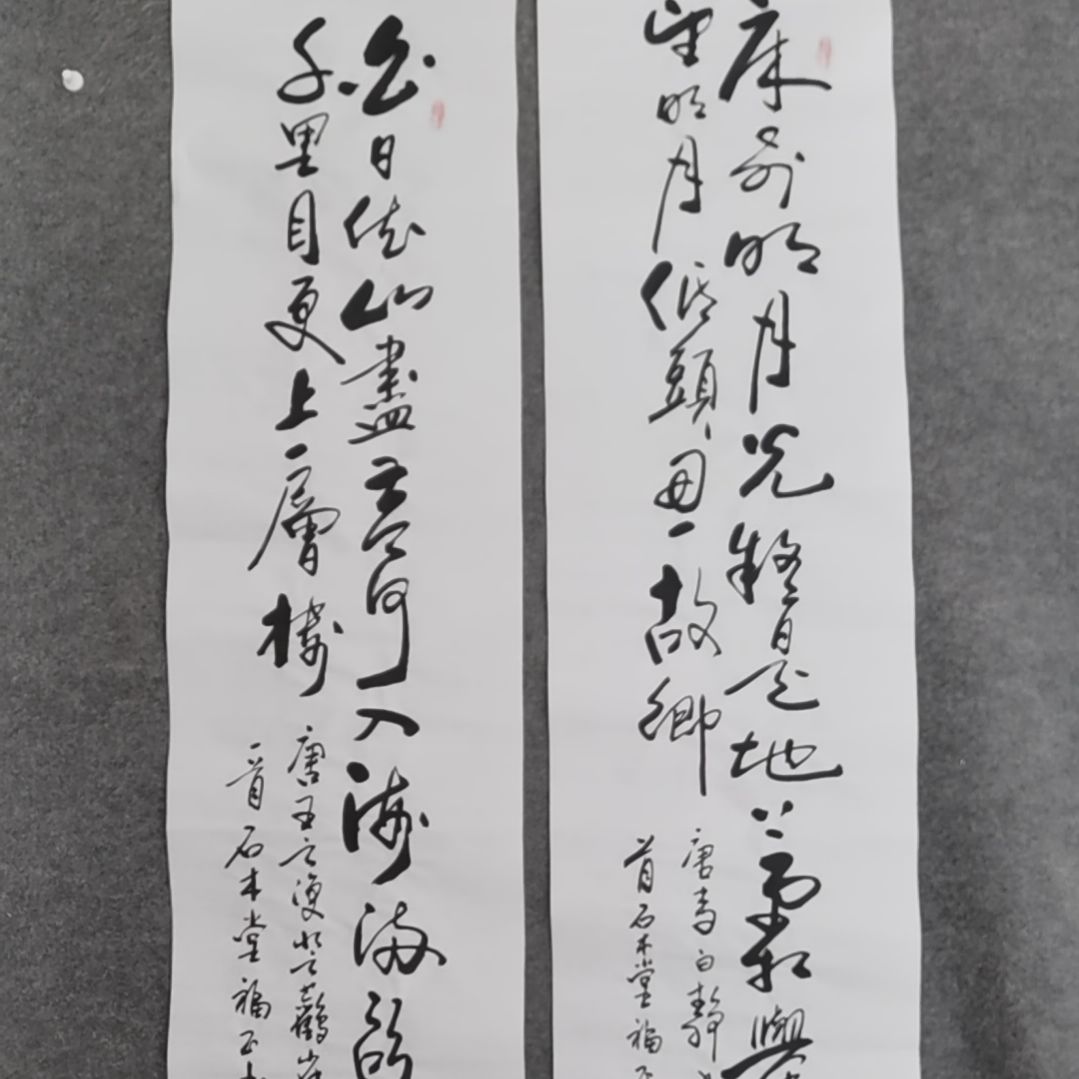 床前明月光疑是地上霜舉
望明月低頭思故鄉
唐李白靜
首石木堂福
白日依山盡黃河入海流欲
千里目更上一層樓
唐王之渙登鸛雀
一首石木堂福